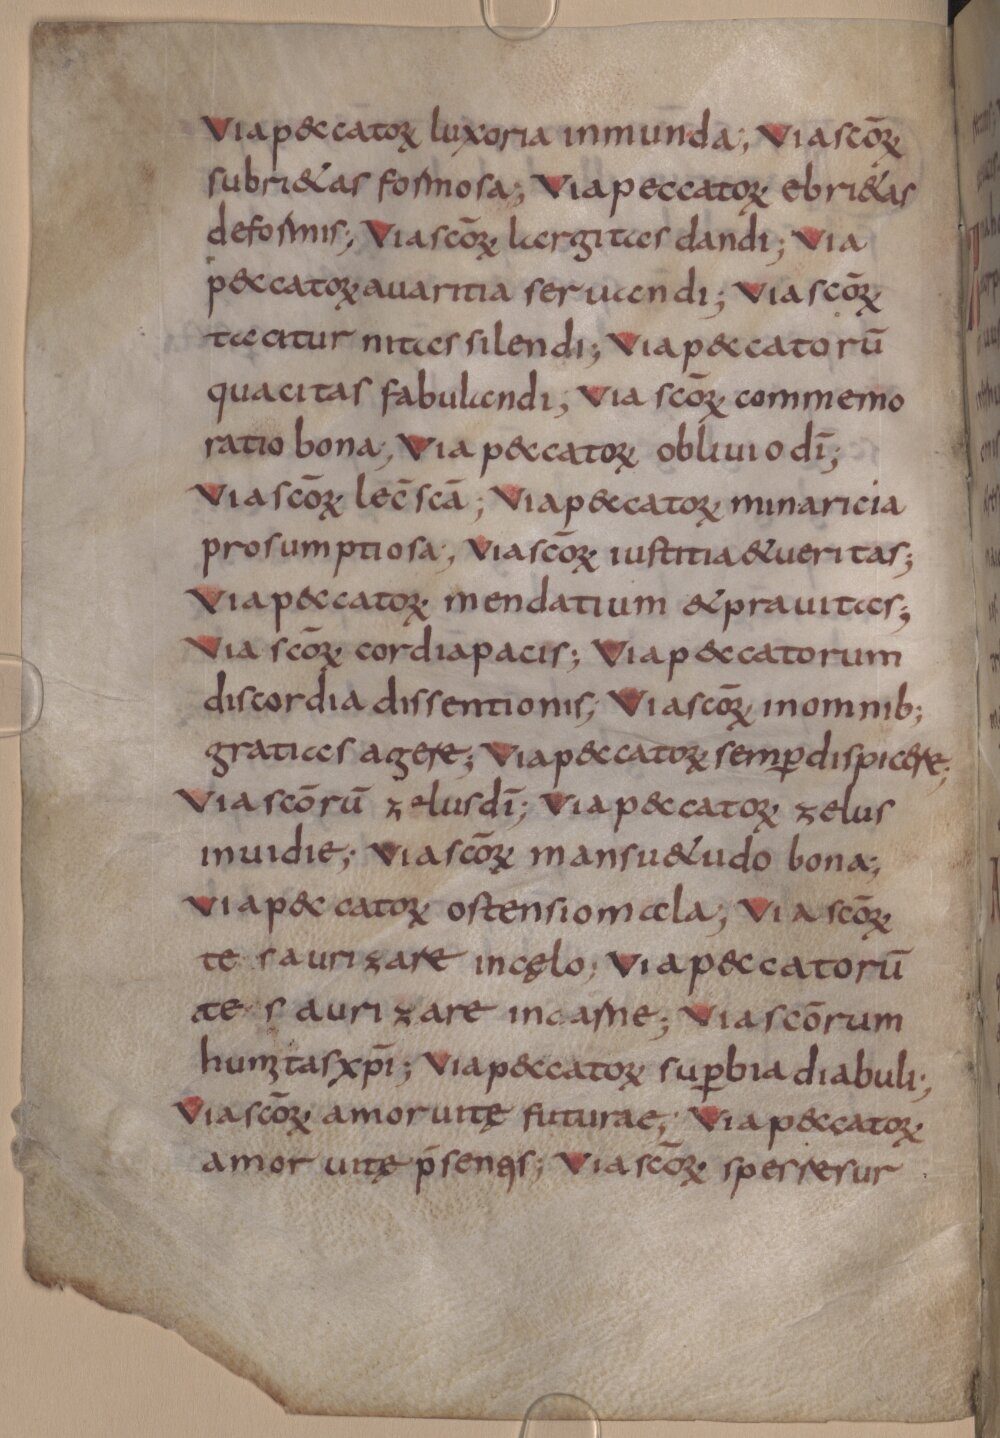 Via p&ccatoꝝ luxoria inmunda; Via scōꝝ
subri&as formosa; Via peccatoꝝ ebri&as
deformis; Via scōꝝ largitas dandi; Via
p&ccatoꝝ auaritia seruandi; Via scōꝝ
taciturnitas silendi; Via p&ccatorū
quacitas fabulandi; Via scōꝝ commemo
ratio bona; Via p&ccatoꝝ obliuio dī;
Via scōꝝ lec̄ scā; Via p&ccatoꝝ minaricia
prosumptiosa; Via scōꝝ iustitia & ueritas;
Via p&ccatoꝝ mendatium & prauitas;
Via scōꝝ cordia pacis; Via p&ccatorum
discordia dissentionis; Via scōꝝ in omnib;
gratias agere; Via p&ccatoꝝ semꝑ dispicere;
Via scōrū zelus dī; Via p&ccatoꝝ zelus
inuidie; Via scōꝝ mansu&udo bona;
Via p&ccatoꝝ ostensio mala; Via scōꝝ
tesaurizare in cęlo; Via p&ccatorū
tesaurizare in carne; Via scōrum
humꝫtas xp̄i; Via p&ccatoꝝ suꝑbia diabuli;
Via scōꝝ amor uitę futurae; Via p&ccatoꝝ
amor uitę p̄sentis; Via scōꝝ spes resur